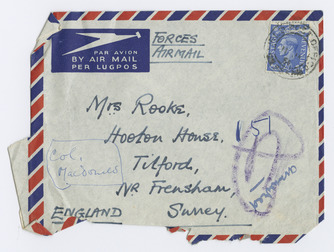 FORCES
AIRMAIL
PAR AVION
BY AIR MAIL
PER LUGPOS
Mrs Rooke,
Hooton House,
Tilford,
Nr Frensham,
ENGLAND Surrey.
Col.
Macdonald